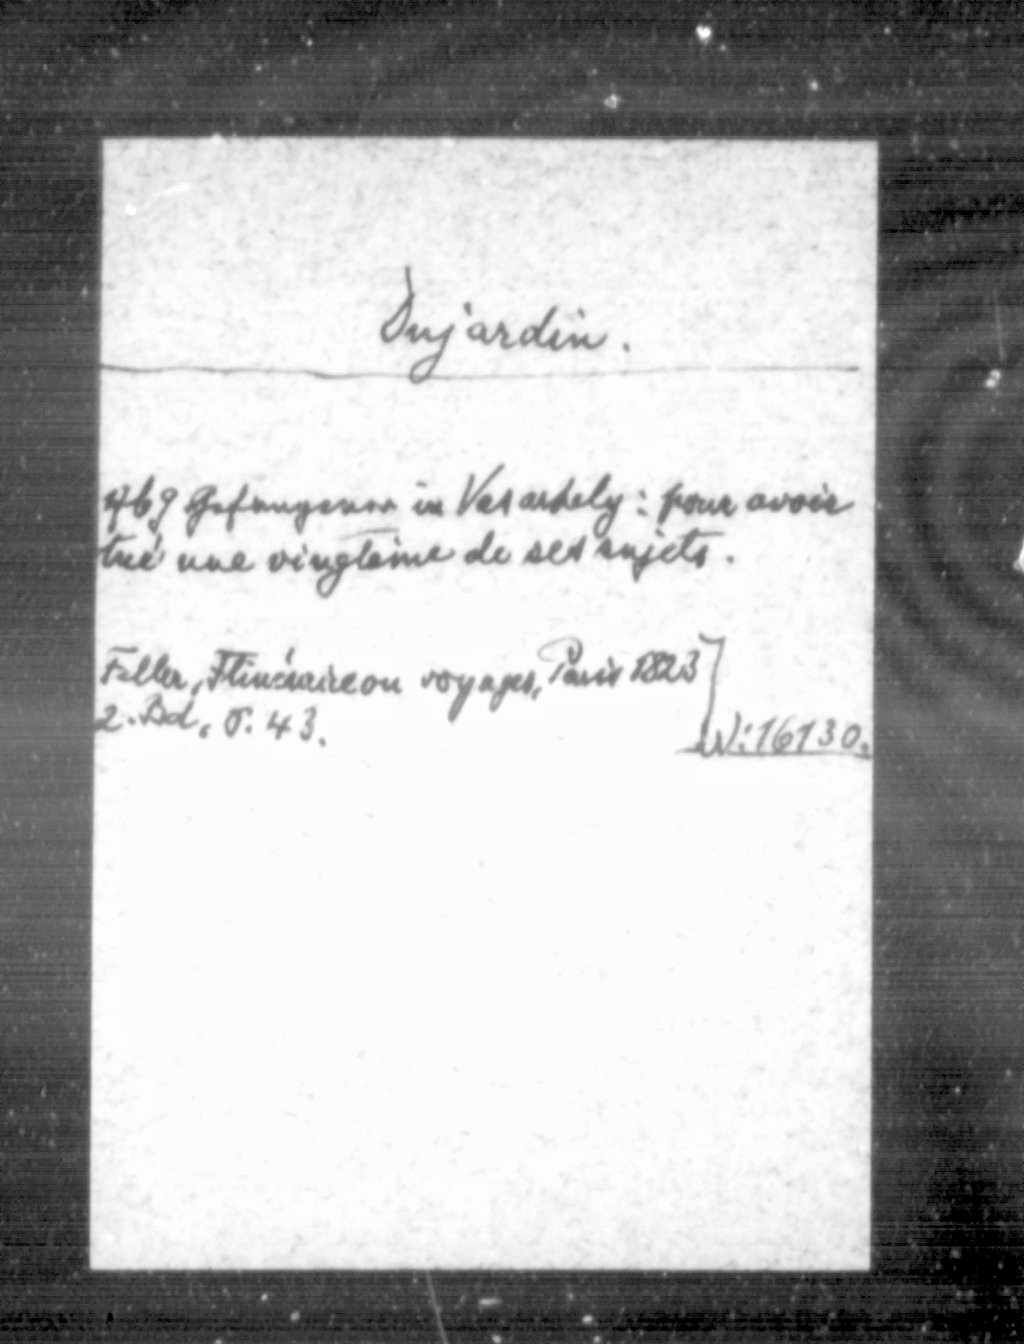 Dujardin.
769 Gefangener in Vasarhely: pour avoir
tué une vingtaine de ses sujets.
Feller, Itinéraire ou voyages, Paris 1823
2. Bd, S. 43.
W: 16130.